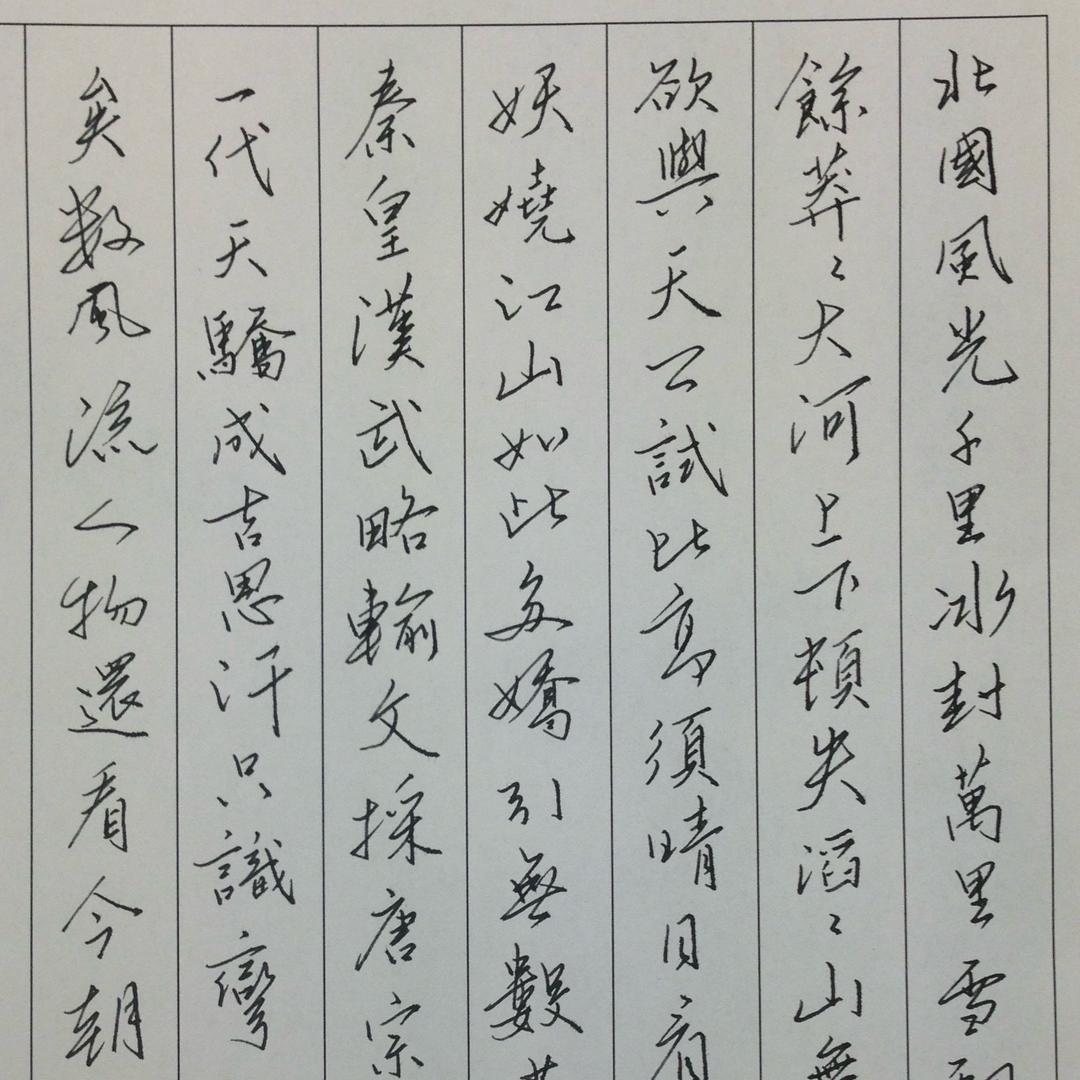 北國風光千里冰封萬里雪
餘莽〻大河上下頓失滔〻山
欲與天公試比高須晴日看
妖嬈江山如此多嬌引無數
秦皇漢武略輸文採唐宗
一代天驕成吉思汗只識彎
矣數風流人物還看今朝